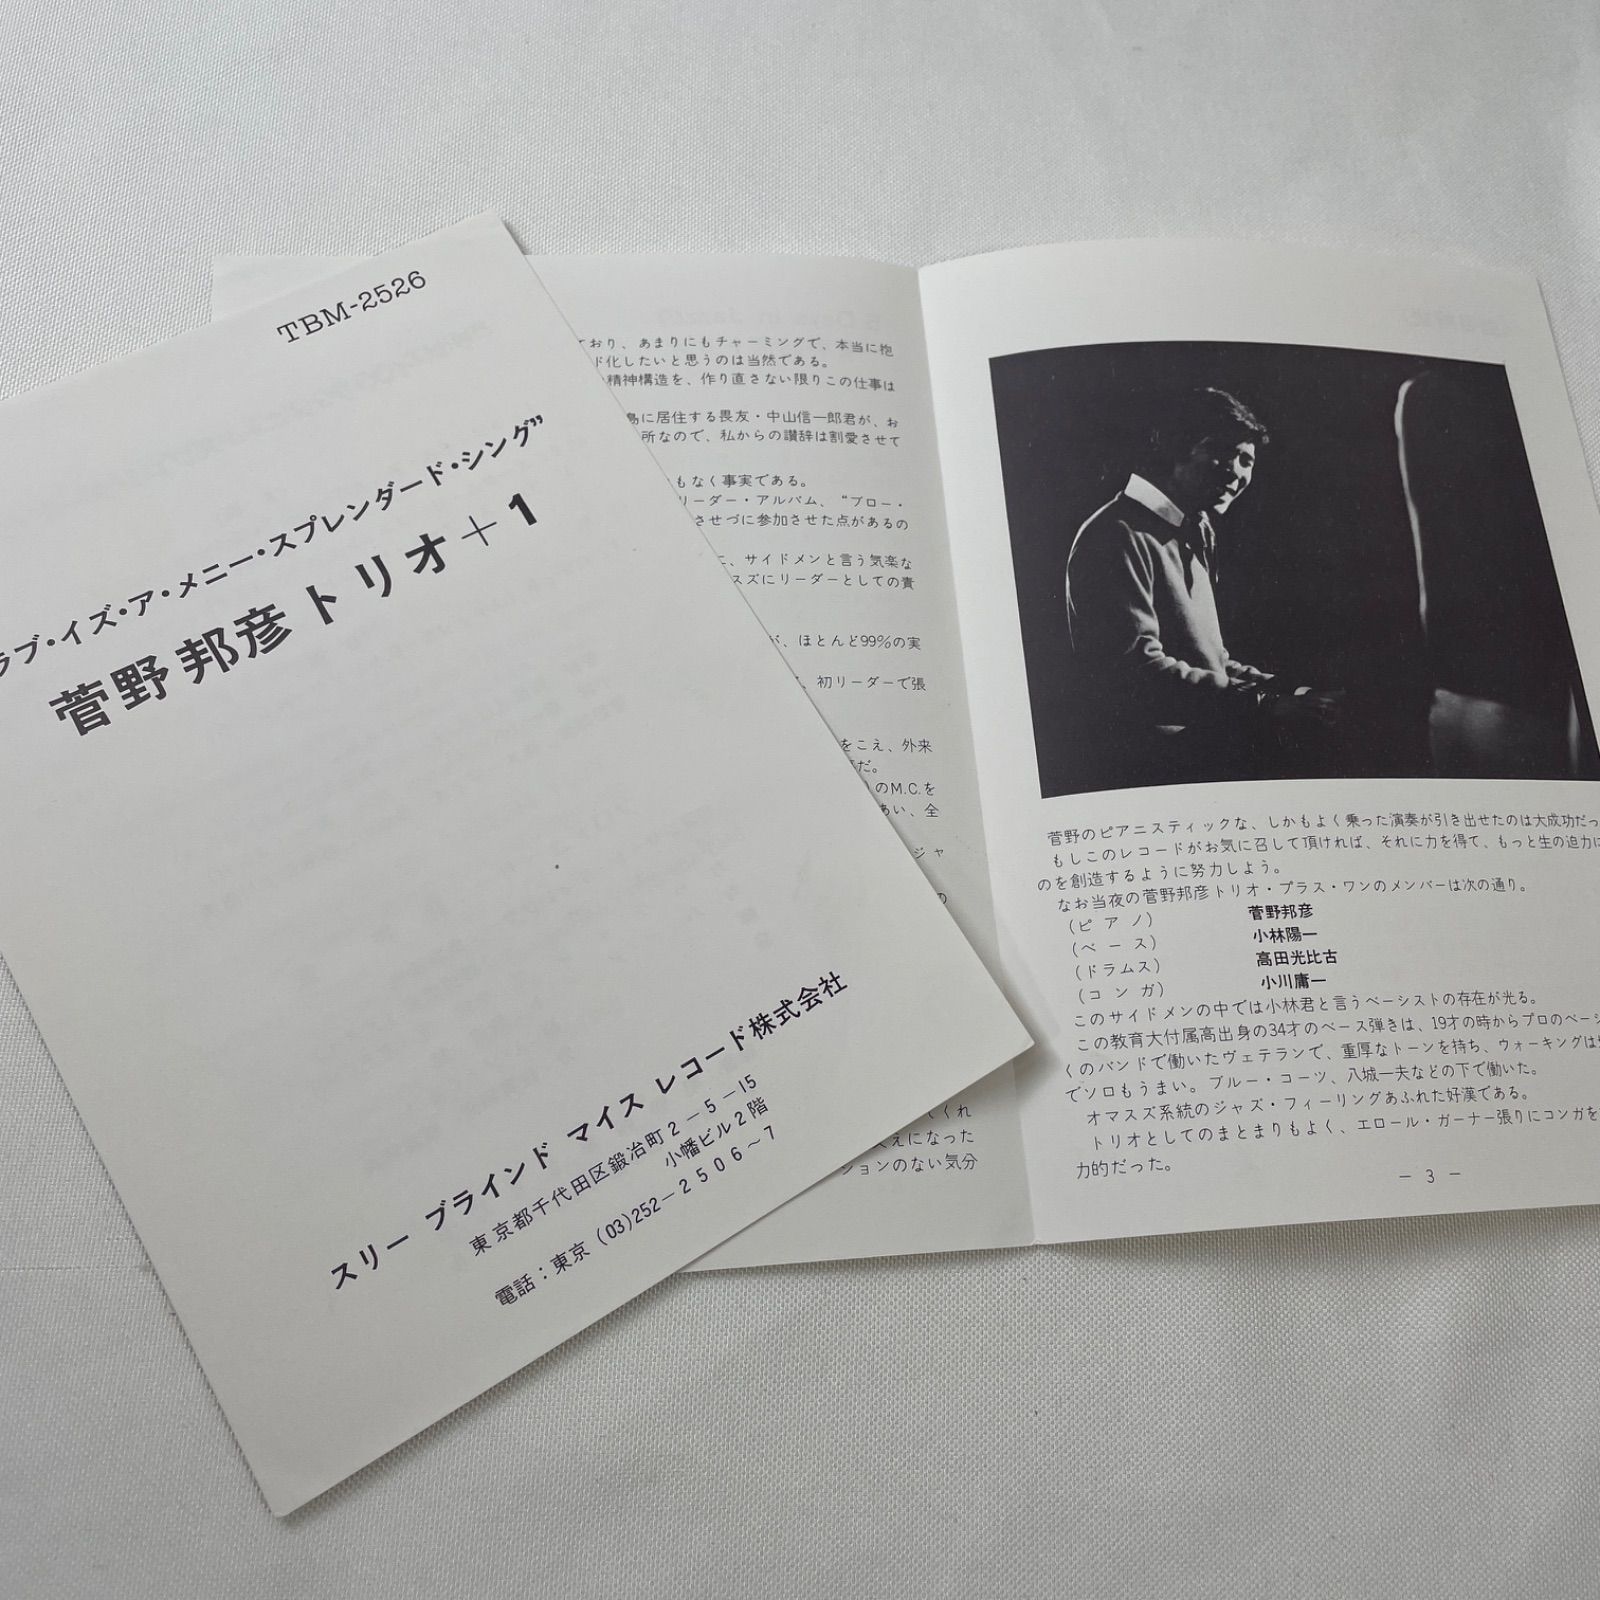 TBM-2526
ラブ・イズ・ア・メニー・スプレンダード・シング”
菅野邦彦トリオ＋1
スリー ブラインド マイス レコード株式会社
東京都千代田区鍛冶町2－5－15
小幡ビル2階
電話：東京 (03)252－2506〜7
ており、あまりにもチャーミングで、本当に抱
ド化したいと思うのは当然である。
精神構造を、作り直さない限りこの仕事は
島に居住する畏友・中山信一郎君が、お
所なので、私からの讃辞は割愛させて
もなく事実である。
リーダー・アルバム、“ブロー・
させづに参加させた点があるの
に、サイドメンと言う気楽な
スズにリーダーとしての責
が、ほとんど99％の実
、初リーダーで張
をこえ、外来
だ。
のM.C.を
あい、全
ジャ
の
てくれ
えになった
ションのない気分
菅野のピアニスティックな、しかもよく乗った演奏が引き出せたのは大成功だっ
もしこのレコードがお気に召して頂ければ、それに力を得て、もっと生の迫力に
のを創造するように努力しよう。
なお当夜の菅野邦彦トリオ・プラス・ワンのメンバーは次の通り。
(ピ ア ノ) 菅野邦彦
(ベ ー ス) 小林陽一
(ドラムス) 高田光比古
(コ ン ガ) 小川庸一
このサイドメンの中では小林君と言うベーシストの存在が光る。
この教育大付属高出身の34才のベース弾きは、19才の時からプロのベーシ
くのバンドで働いたヴェテランで、重厚なトーンを持ち、ウォーキングは
でソロもうまい。ブルー・コーツ、八城一夫などの下で働いた。
オマスズ系統のジャズ・フィーリングあふれた好漢である。
トリオとしてのまとまりもよく、エロール・ガーナー張りにコンガを
力的だった。
－ 3 －